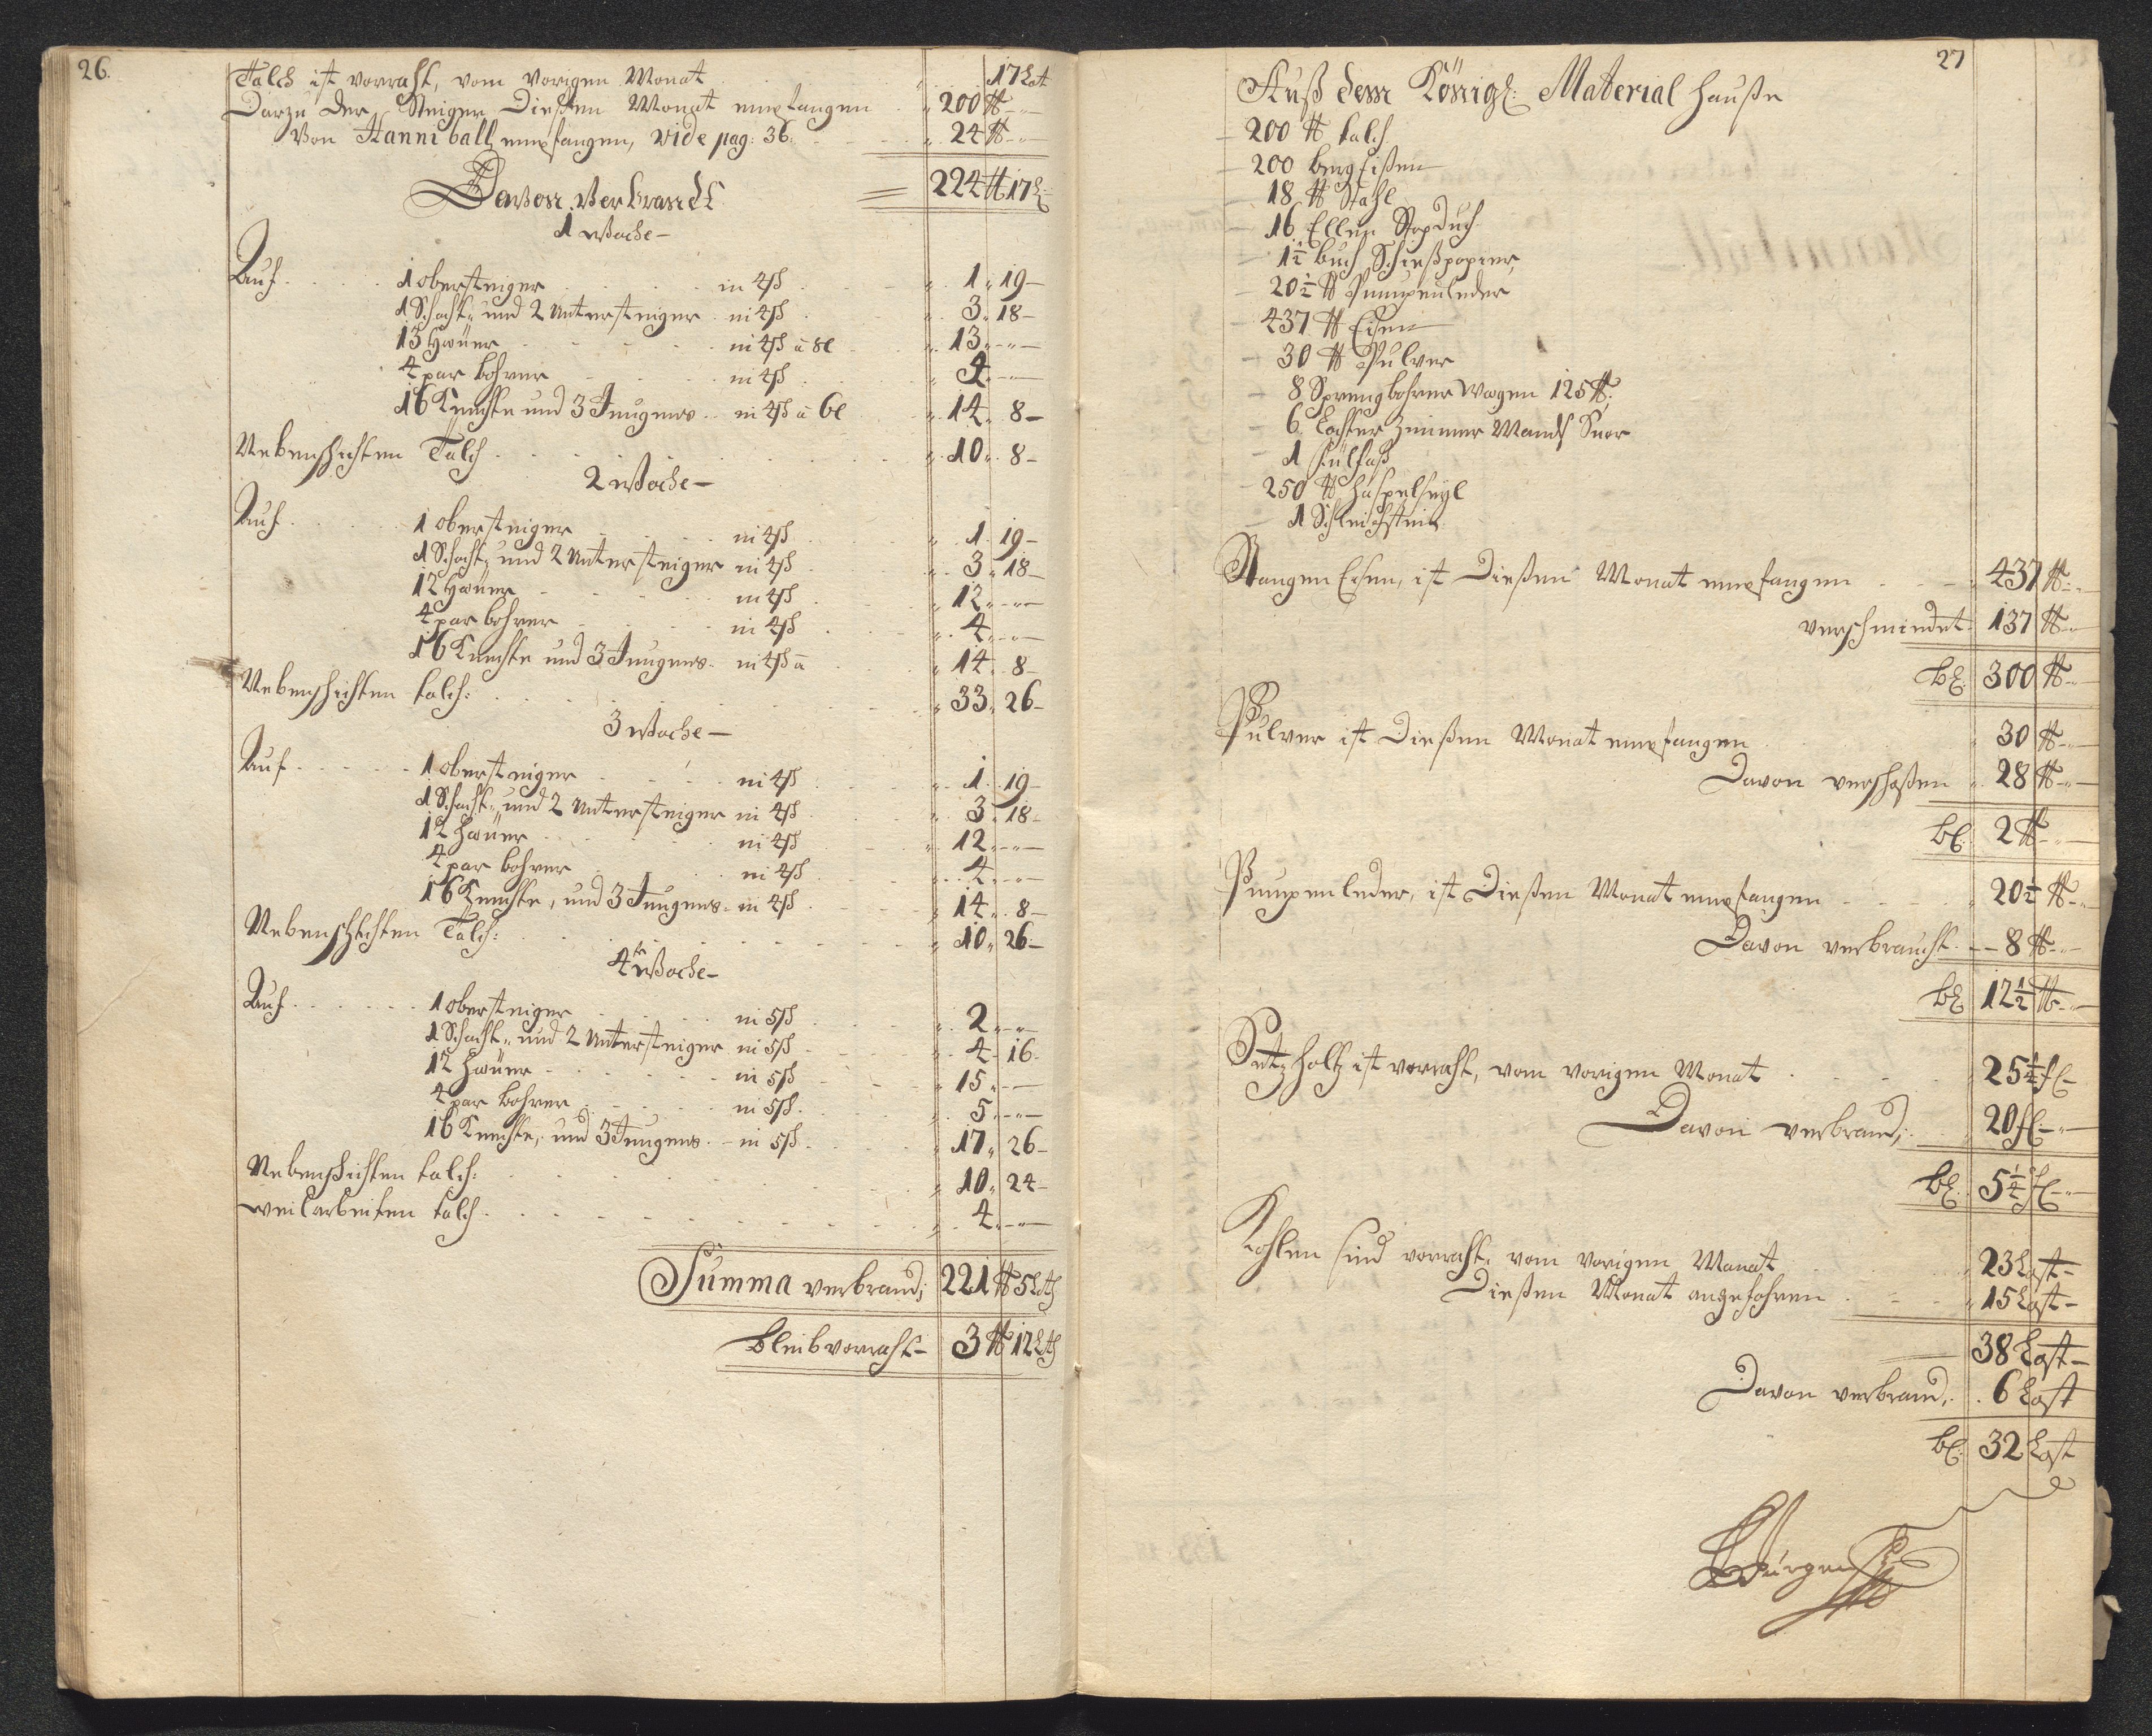 26.
Talch ist vorraht, vom vorigen Monat 17 Lot
Darzu der Steiger Dießen Monat empfangen 200 ℔
Von Hanniball empfangen, vide pag: 36. 24 ℔
224 ℔ 17 L
Davon Verbrandt
1 Woche
Auf 1 obersteiger in 4ß 1 19
1 Schacht- und 2 Untersteiger in 4ß 3 18
13 Hwüer in 4ß â 8l 13
4 par bohrer in 4ß 4
16 Knechte und 3 Jungens in 4ß â 6l 14 8
Nebenschichten Talch 10 8
2 Woche
Auf 1 obersteiger in 4ß 1 19
1 Schacht- und 2 Untersteiger in 4ß 3 18
12 Hwüer in 4ß 12
4 par bohrer in 4ß 4
16 Knechte und 3 Jungens in 4ß â 14 8
Nebenschichten talch: 33 26
3 Woche
Auf 1 obersteiger in 4ß 1 19
1 Schacht- und 2 Untersteiger in 4ß 3 18
12 hwüer in 4ß 12
4 par bohrer in 4ß 4
16 Knechte, und 3 Jungens in 4ß 14 8
Nebenschichten Talch: 10 26
4te Woche
Auf 1 obersteiger in 5ß 2
1 Schacht- und 2 Untersteiger in 5ß 4 16
12 hwüer in 5ß 15
4 par bohrer in 5ß 5
16 Knechte, und 3 Jungens in 5ß 17 26
Nebenschichten talch: 10 24
weilarbeiten talch 4
Summa verbrand; 221 ℔ 5 Lth
bleib vorraht 3 ℔ 12 Lth
27
Auß dem Königl: Material hauße
200 ℔ talch
200 bergEißen
18 ℔ Stahl
16 Ellen Stopduch
1½ buch Schießpapier,
20½ ℔ Pumpenleder
437 ℔ Eisen
30 ℔ Pulver
8 Sprengbohrer Wagen 125 ℔;
6 Lachter Zimmer Mands Snor
1 fülfaß
250 ℔ haspelseyl
1 Schleichstein
Stangen Eisen, ist Dießen Monat empfangen 437 ℔
verschmiedet 137 ℔
bl: 300 ℔
Pulver ist Dießen Monat empfangen 30 ℔
Davon verschoßen 28 ℔
bl: 2 ℔
Pumpenleder, ist Dießen Monat empfangen 20½ ℔
Davon verbraucht 8 ℔
bl 12½ ℔
Setzholtz ist vorraht, vom vorigen Monat 25¼ fl
Davon verbrand; 20 fl:
bl: 5¼ fl
Kohlen sind vorraht, vom vorigen Monat 23 Last
Dießen Monat angefahren 15 Last
38 Last
Davon verbrand, 6 Last
bl: 32 Last